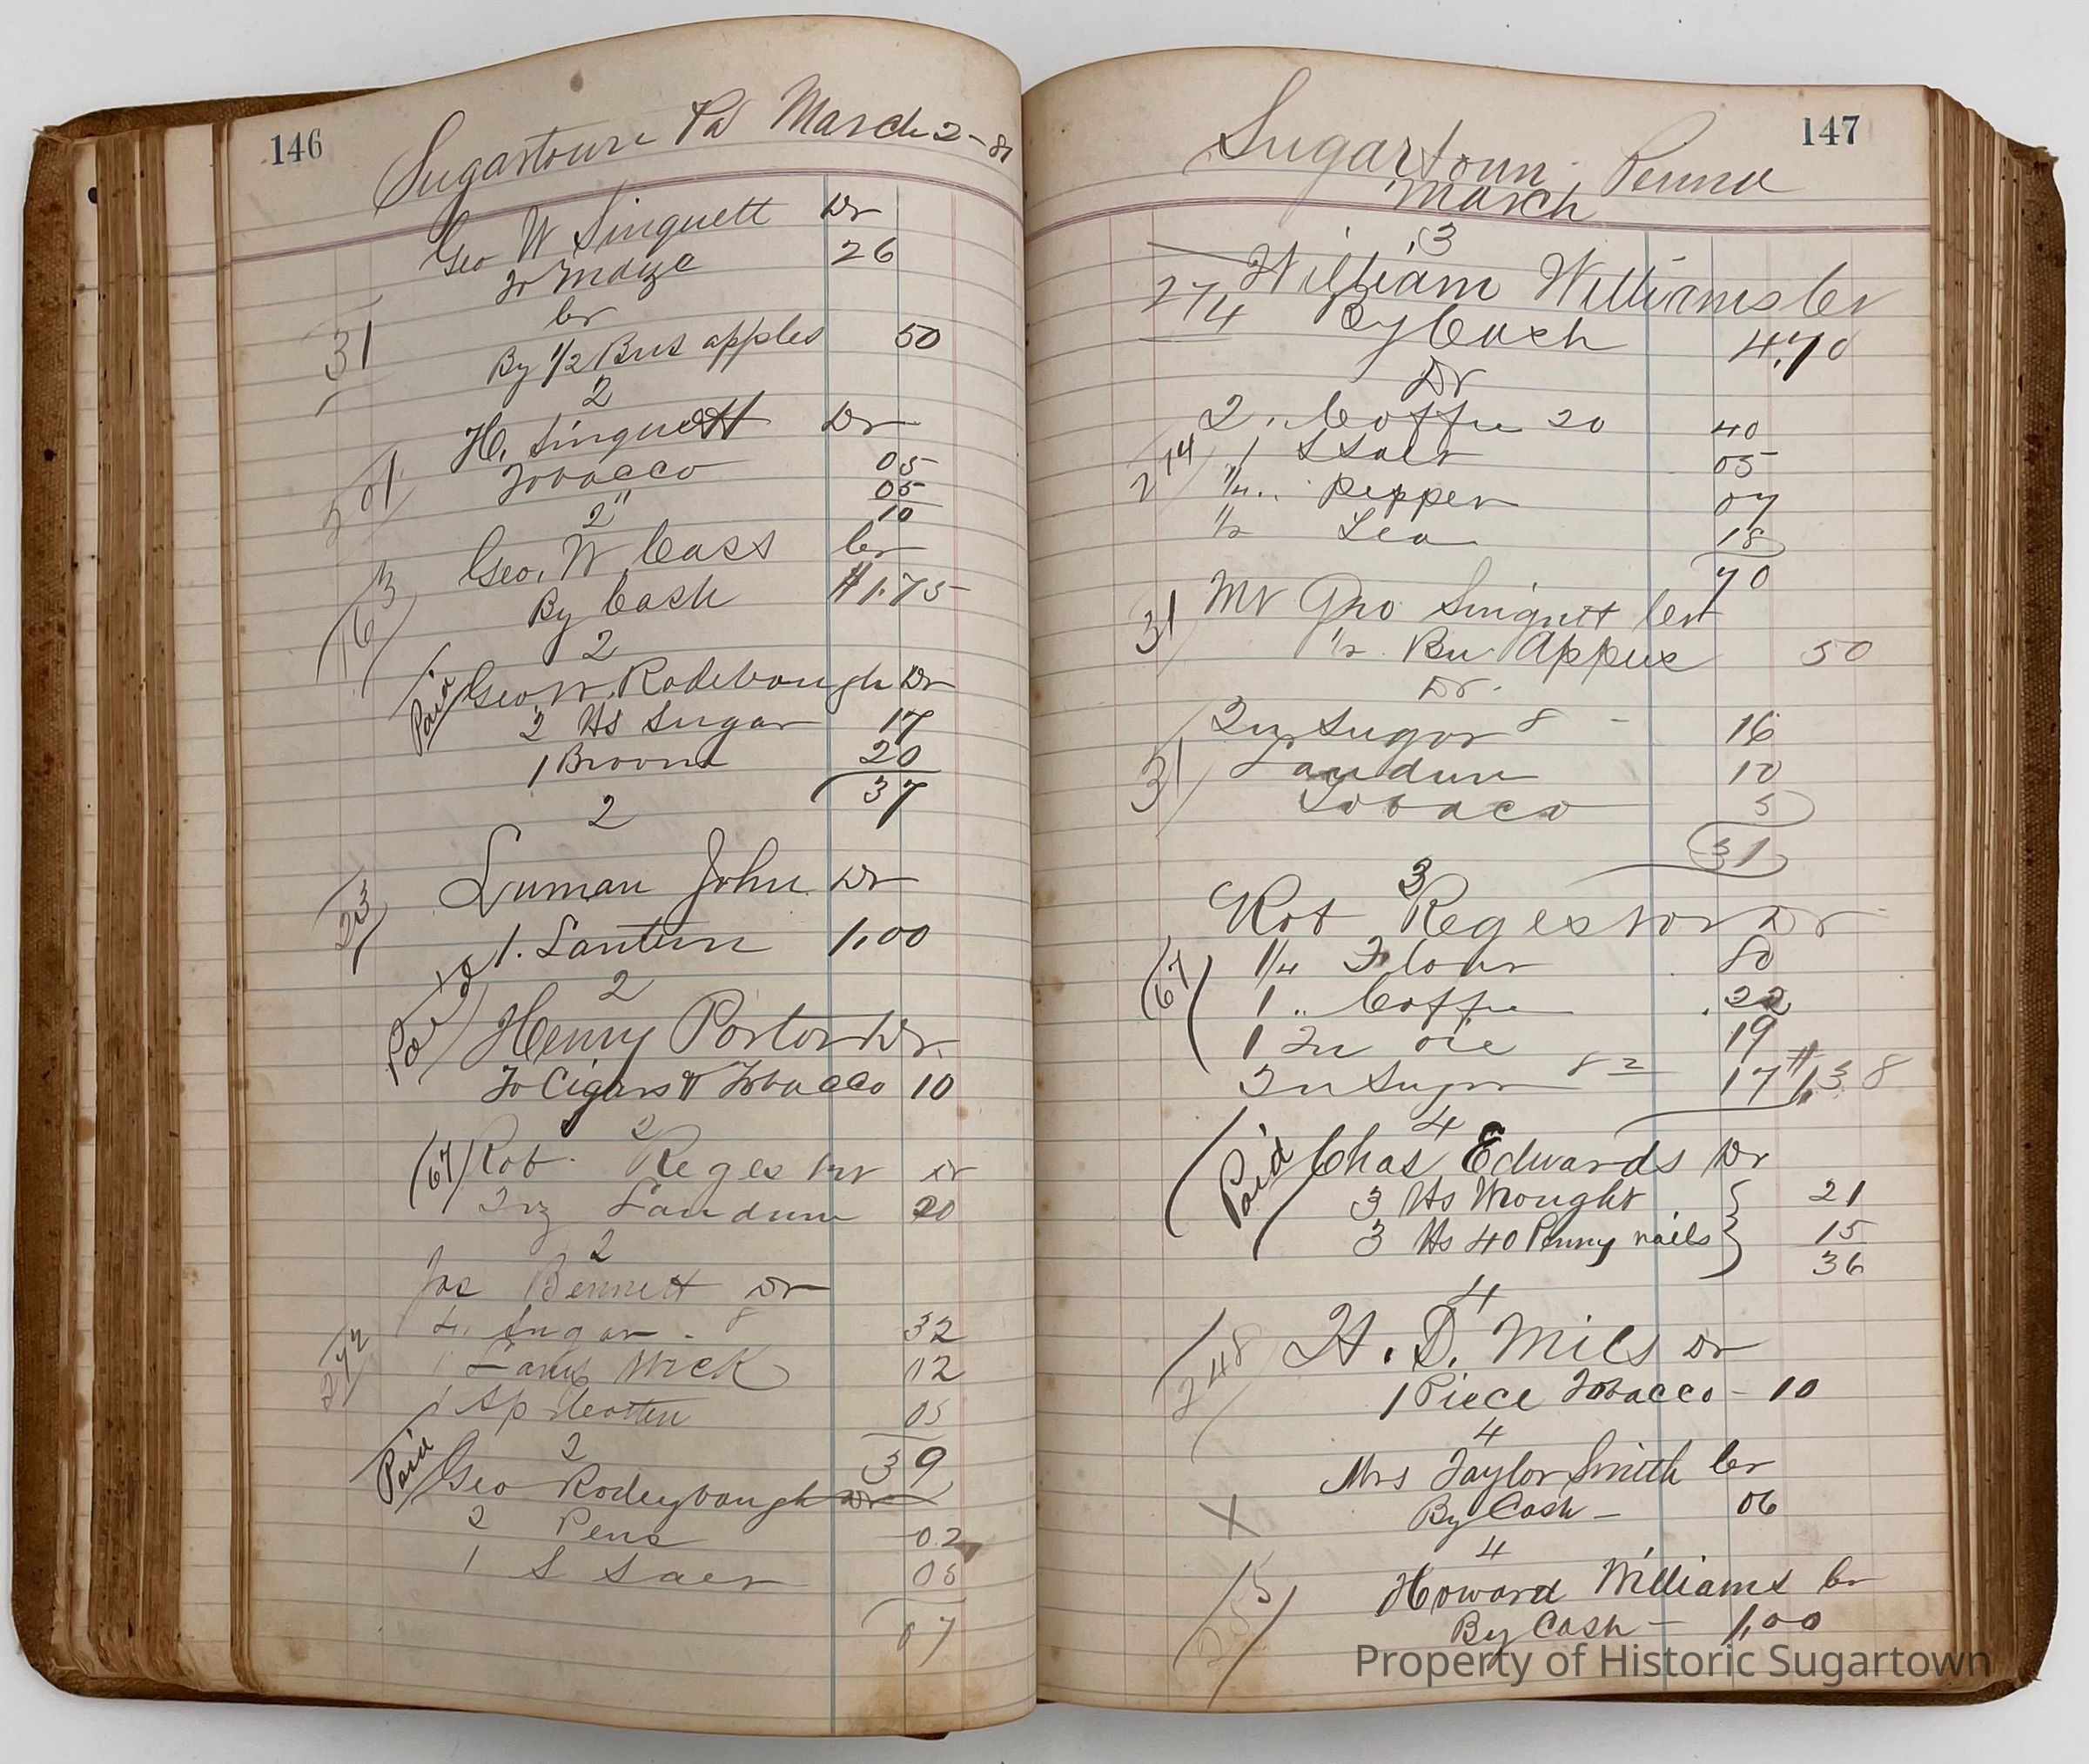 146
Sugartown Pa March 2-81
Geo W Singuett Dr
To Mdze 26
Cr
31 By 1/2 Bus apples 50
2
H. Singuett Dr
51 Tobacco 05
05
10
2"
Geo. W. Cass Cr
163 By Cash $1.75
2
Paid Geo W. Rodebough Dr
2 lbs Sugar 17
1 Broom 20
37
2
Luman John Dr
23 1. Lantern 1.00
2
Paid Henry Porter Dr.
To Cigars & Tobacco 10
2
(67) Rob. Regester Dr
2 oz Laudum 20
2
Jas Bennett Dr
4. Sugar - 8 32
272 1 Lamp Wick 02
1 Sp Cotten 05
39
2
Paid Geo Rodeybough Dr
2 Pens 02
1 S Salt 05
07
147
Sugartown Penna
March
3
William Williams Cr
274 By Cash 4.70
Dr
2. Coffee 20 40
274 1 S Salt 05
1/4.. Pepper 07
1/2 Tea 18
70
31 Mr Geo Singuett Cr
1/2 Bu Apples 50
Dr.
2 Sugar 8 - 16
31 Laudum 10
Tobaco 5
31
3
Rob Regester Dr
(67) 1/4 Flour 80
1.. Coffee 22
1 oil 19
Sugar 8 17 $1.38
4
Paid Chas Edwards Dr
3 lbs Wrought 21
3 lbs 40 Penny nails 15
36
4
248 H. D. Mils Dr
1 Piece Tobacco - 10
4
Mrs Taylor Smith Cr
X By Cash - 06
4
255 Howard Williams Cr
By Cash - 1.00
Property of Historic Sugartown